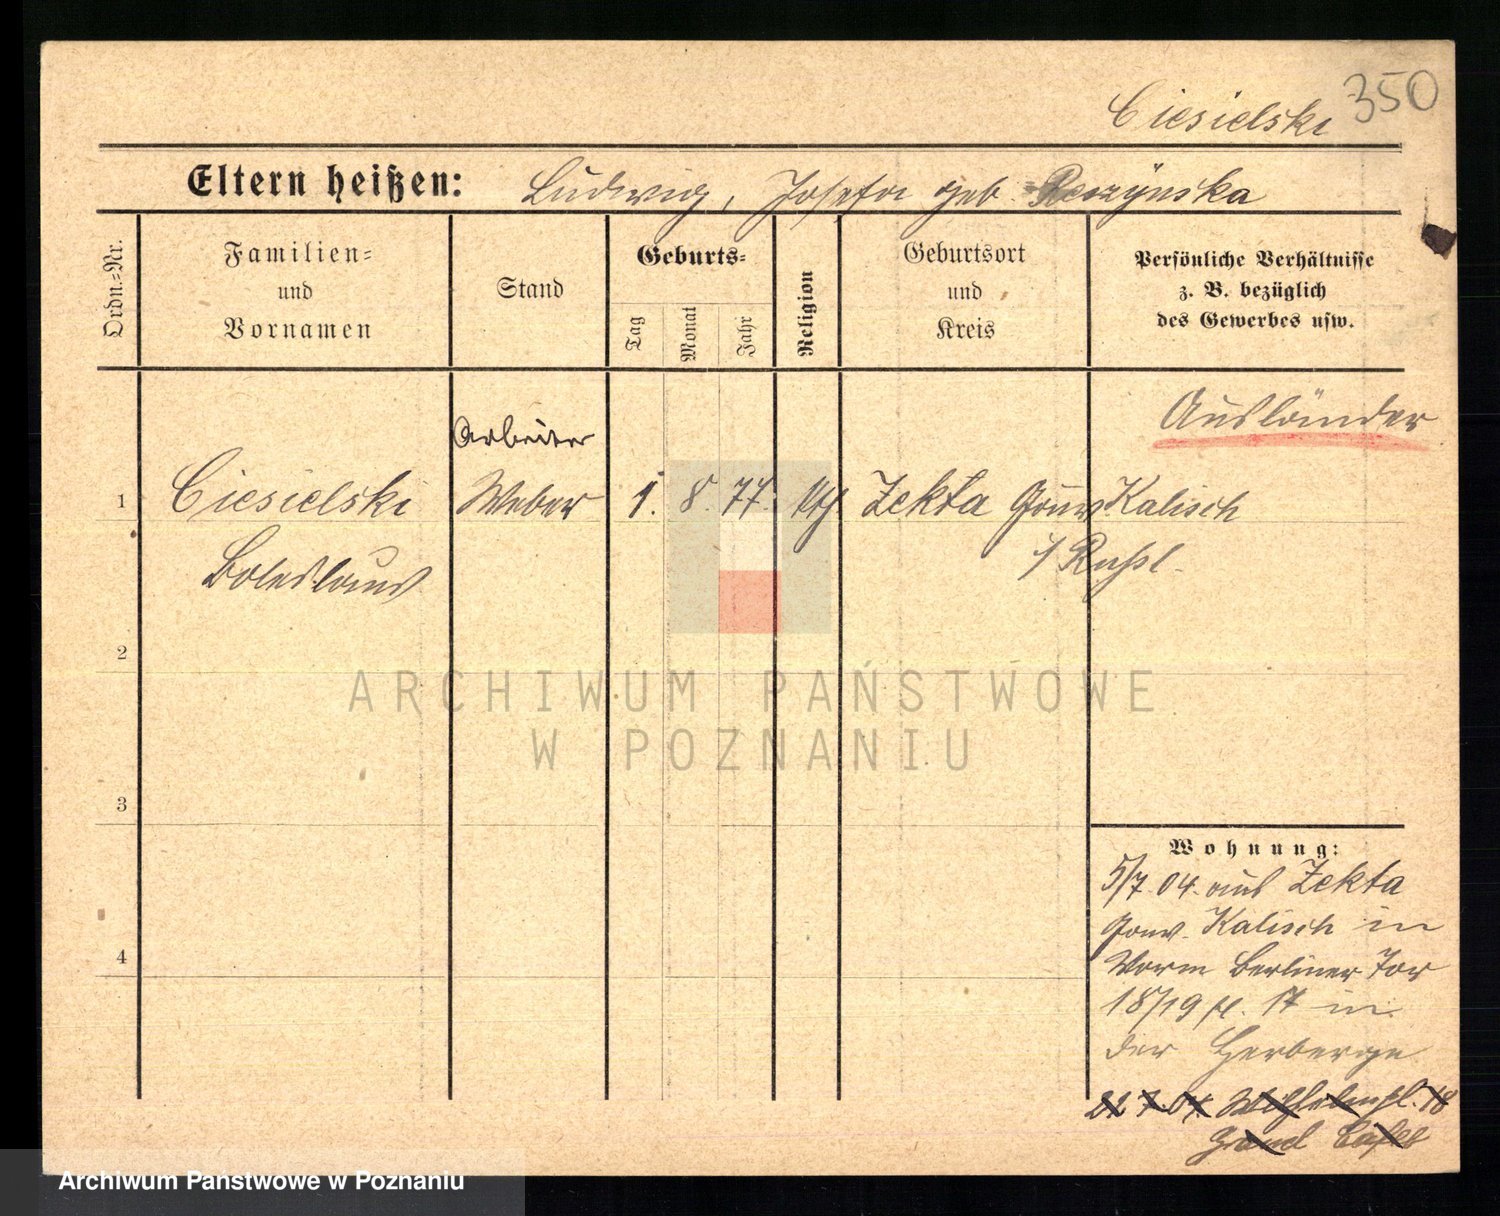 350
Ciesielski
Eltern heißen: Ludwig, Josefa geb.
Ordn.-Nr.
Familien=
und
Vornamen
Stand
Geburts=
Tag
Monat
Jahr
Religion
Geburtsort
und
Kreis
Persönliche Verhältnisse
z. B. bezüglich
des Gewerbes usw.
Ausländer
Arbeiter
1 Ciesielski Weber 1. 8. 77. kth Zekta Gouv Kalisch
Boleslaus
i/ Rußl.
2
3
4
Wohnung:
5/7. 04. aus Zekta
Gouv. Kalisch in
Vorm Berliner Tor
18/19 17 in
der Herberge
22 7. 04 Wilhelmspl. 18
Grand Cafee
ARCHIWUM PAŃSTWOWE
W POZNANIU
Archiwum Państwowe w Poznaniu